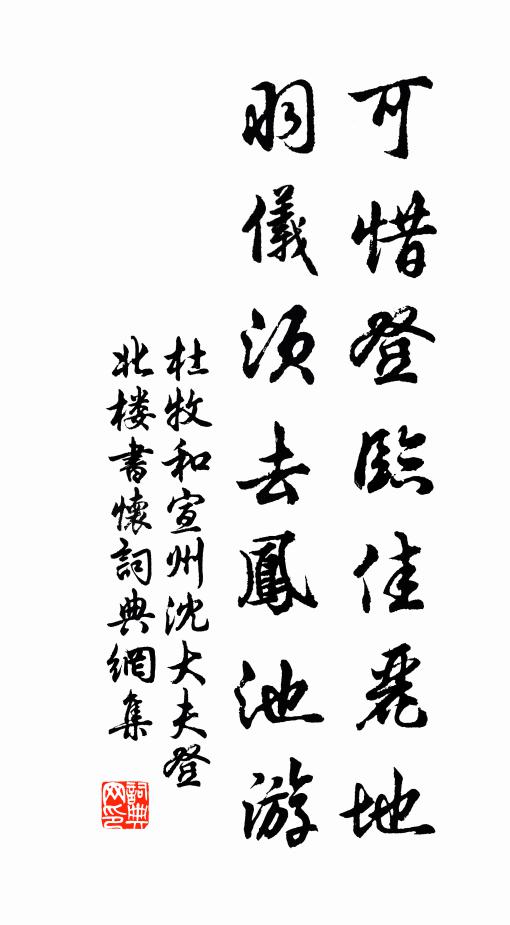 可惜登臨佳麗地
羽儀須去鳳池游
杜牧和宣州沈大夫登
北楼書懷詞典網集
詞典网印